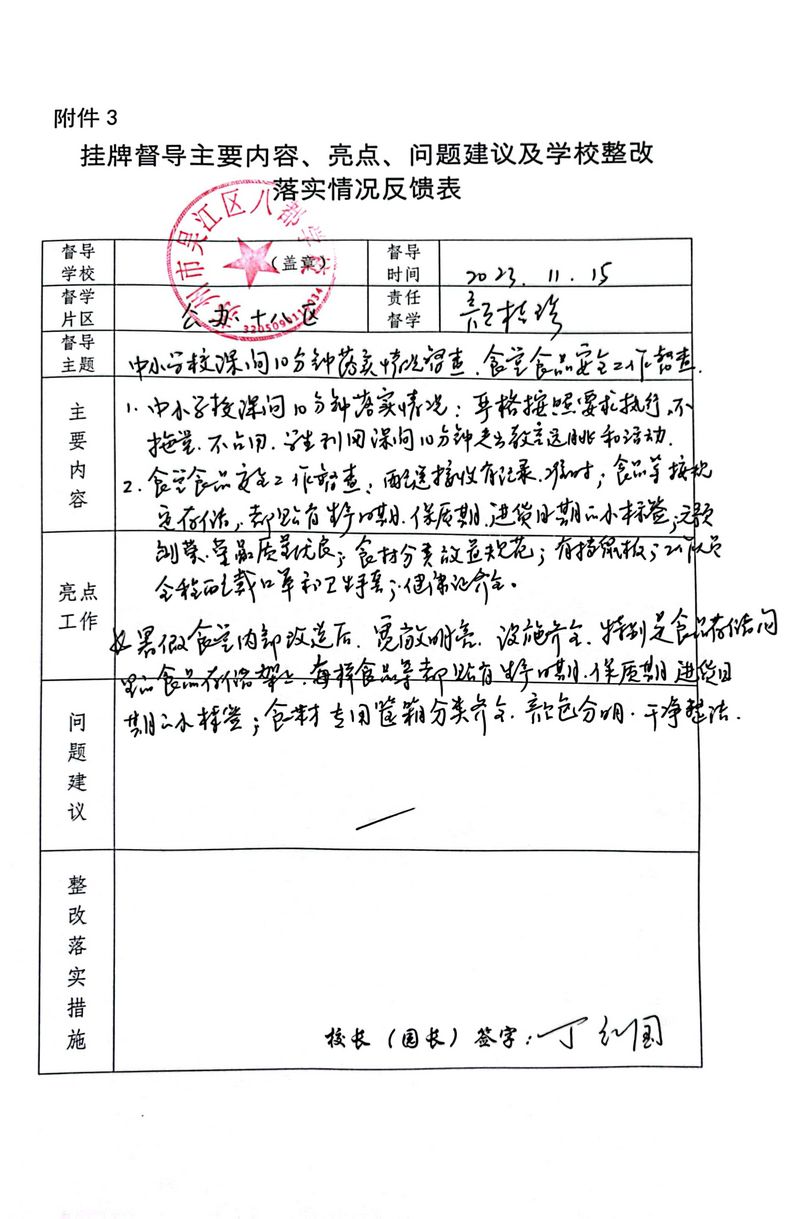 附件 3
挂牌督导主要内容、亮点、问题建议及学校整改
落实情况反馈表
督导
学校
苏州市吴江区八都学校
(盖章)
3205090112034
督导
时间
2023. 11. 15
督学
片区
公办十八区
责任
督学
督导
主题
中小学校课间10分钟落实情况督查、食堂食品安全工作督查.
主要内容
1. 中小学校课间10分钟落实情况: 严格按照要求执行, 不
拖堂. 不占用. 学生利用课间10分钟走出教室远眺和活动.
2. 食堂食品安全工作督查: 配送接收有记录. 准时; 食品等按规
定存储, 都贴有生产日期. 保质期. 进货日期的小标签; 无预
制菜. 菜品质量优良; 食材分类放置规范; 有挡鼠板; 工作人员
全程配戴口罩和卫生手套; 健康证齐全。
亮点
工作
暑假食堂内部改造后, 宽敞明亮. 设施齐全. 特别是食品存储间
里的食品存储架上, 每样食品等都贴有生产日期. 保质期. 进货日
期的小标签; 食材专用筐箱分类齐全. 颜色分明. 干净整洁.
问题建议
整改落实措施
校长（园长）签字: 丁红国